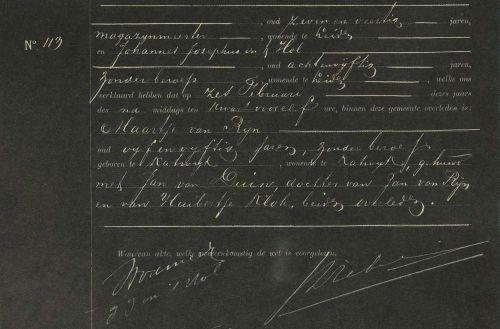 , oud zeven en veertig jaren,
magazynmeester , wonende te Leiden
Nº. 113
en Johannes Josephus in 't Hol
, oud achtenvyftig jaren,
zonder beroep , wonende te Leiden , welke ons
verklaard hebben dat op zes Februari dezes jaars
des na middags ten kwart voor elf ure, binnen deze gemeente overleden is:
Maartje van Ryn
oud vyf en vyftig jaren, zonder beroep
geboren te Katwyk , wonende te Katwyk, gehuwd
met Jan van Duin, dochter van Jan van Ryn
en van Huibertje Klok, beiden overleden.
Waarvan akte, welke overeenkomstig de wet is voorgelezen.
J J in 't Hol